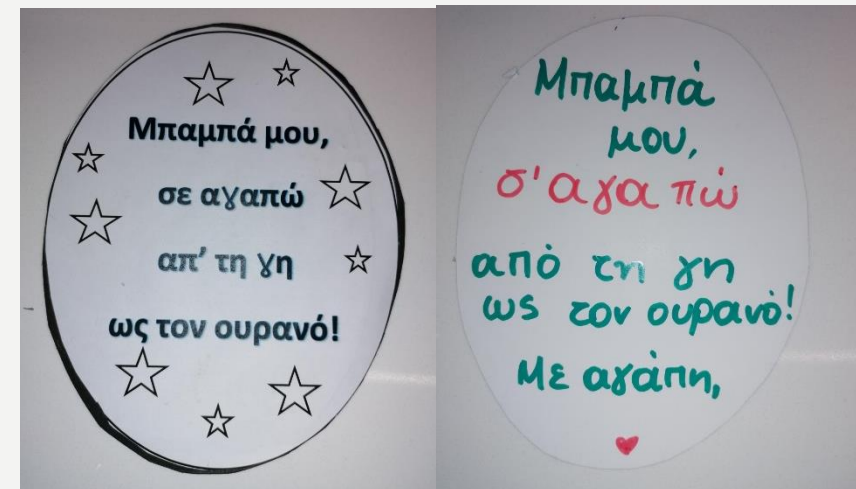 Μπαμπά μου,
σε αγαπώ
απ' τη γη
ως τον ουρανό!
Μπαμπά
μου,
σ'αγαπώ
από τη γη
ως τον ουρανό!
Με αγάπη,